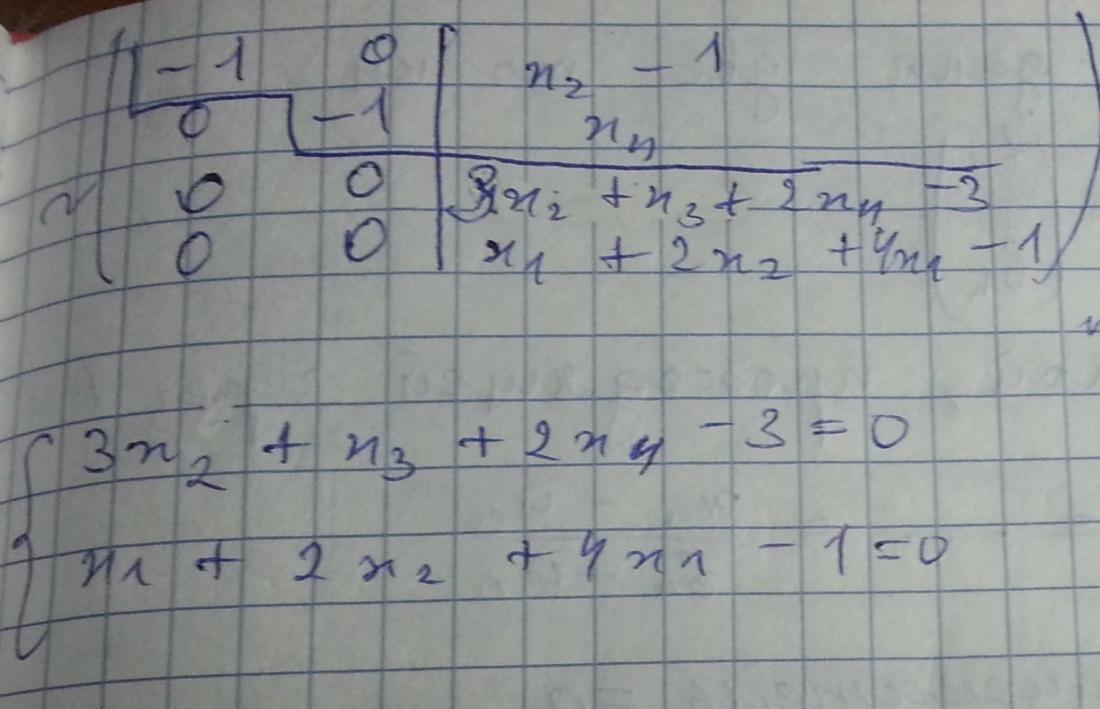 ~ ( -1 0 | x₂ - 1
0 -1 | x₄
0 0 | 3x₂ + x₃ + 2x₄ - 3
0 0 | x₁ + 2x₂ + 4x₁ - 1 )
{ 3x₂ + x₃ + 2x₄ - 3 = 0
x₁ + 2x₂ + 4x₁ - 1 = 0